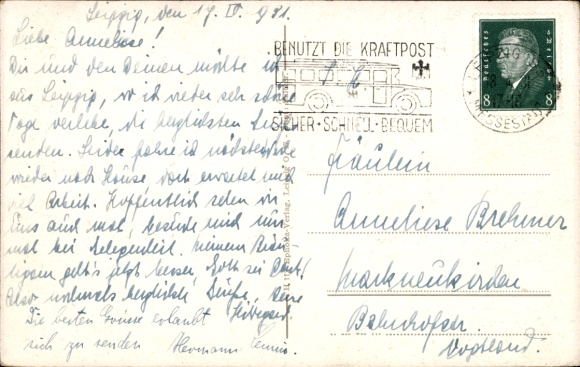 Leipzig, den 17. IV. 931.
Liebe Anneliese!
Dir und den Deinen möchte ich
aus Leipzig, wo ich wieder sehr schöne
Tage verlebe, die herzlichsten Grüße
senden. Leider fahre ich nächste Woche
wieder nach Hause, dort erwartet mich
viel Arbeit. Hoffentlich sehen wir
uns auch mal, besuche mich nur
mal bei Gelegenheit. Meinem
geht's jetzt besser, Gott sei Dank!
Also nochmals herzliche Grüße, Deine
Hildegard
Die besten Grüsse erlaubt
sich zu senden Hermann
BENUTZT DIE KRAFTPOST
SICHER · SCHNELL · BEQUEM
LEIPZIG
MESSESTADT
Deutsches Reich
8 8
Fräulein
Anneliese Brehmer
Markneukirchen
Bahnhofstr.
Vogtland.